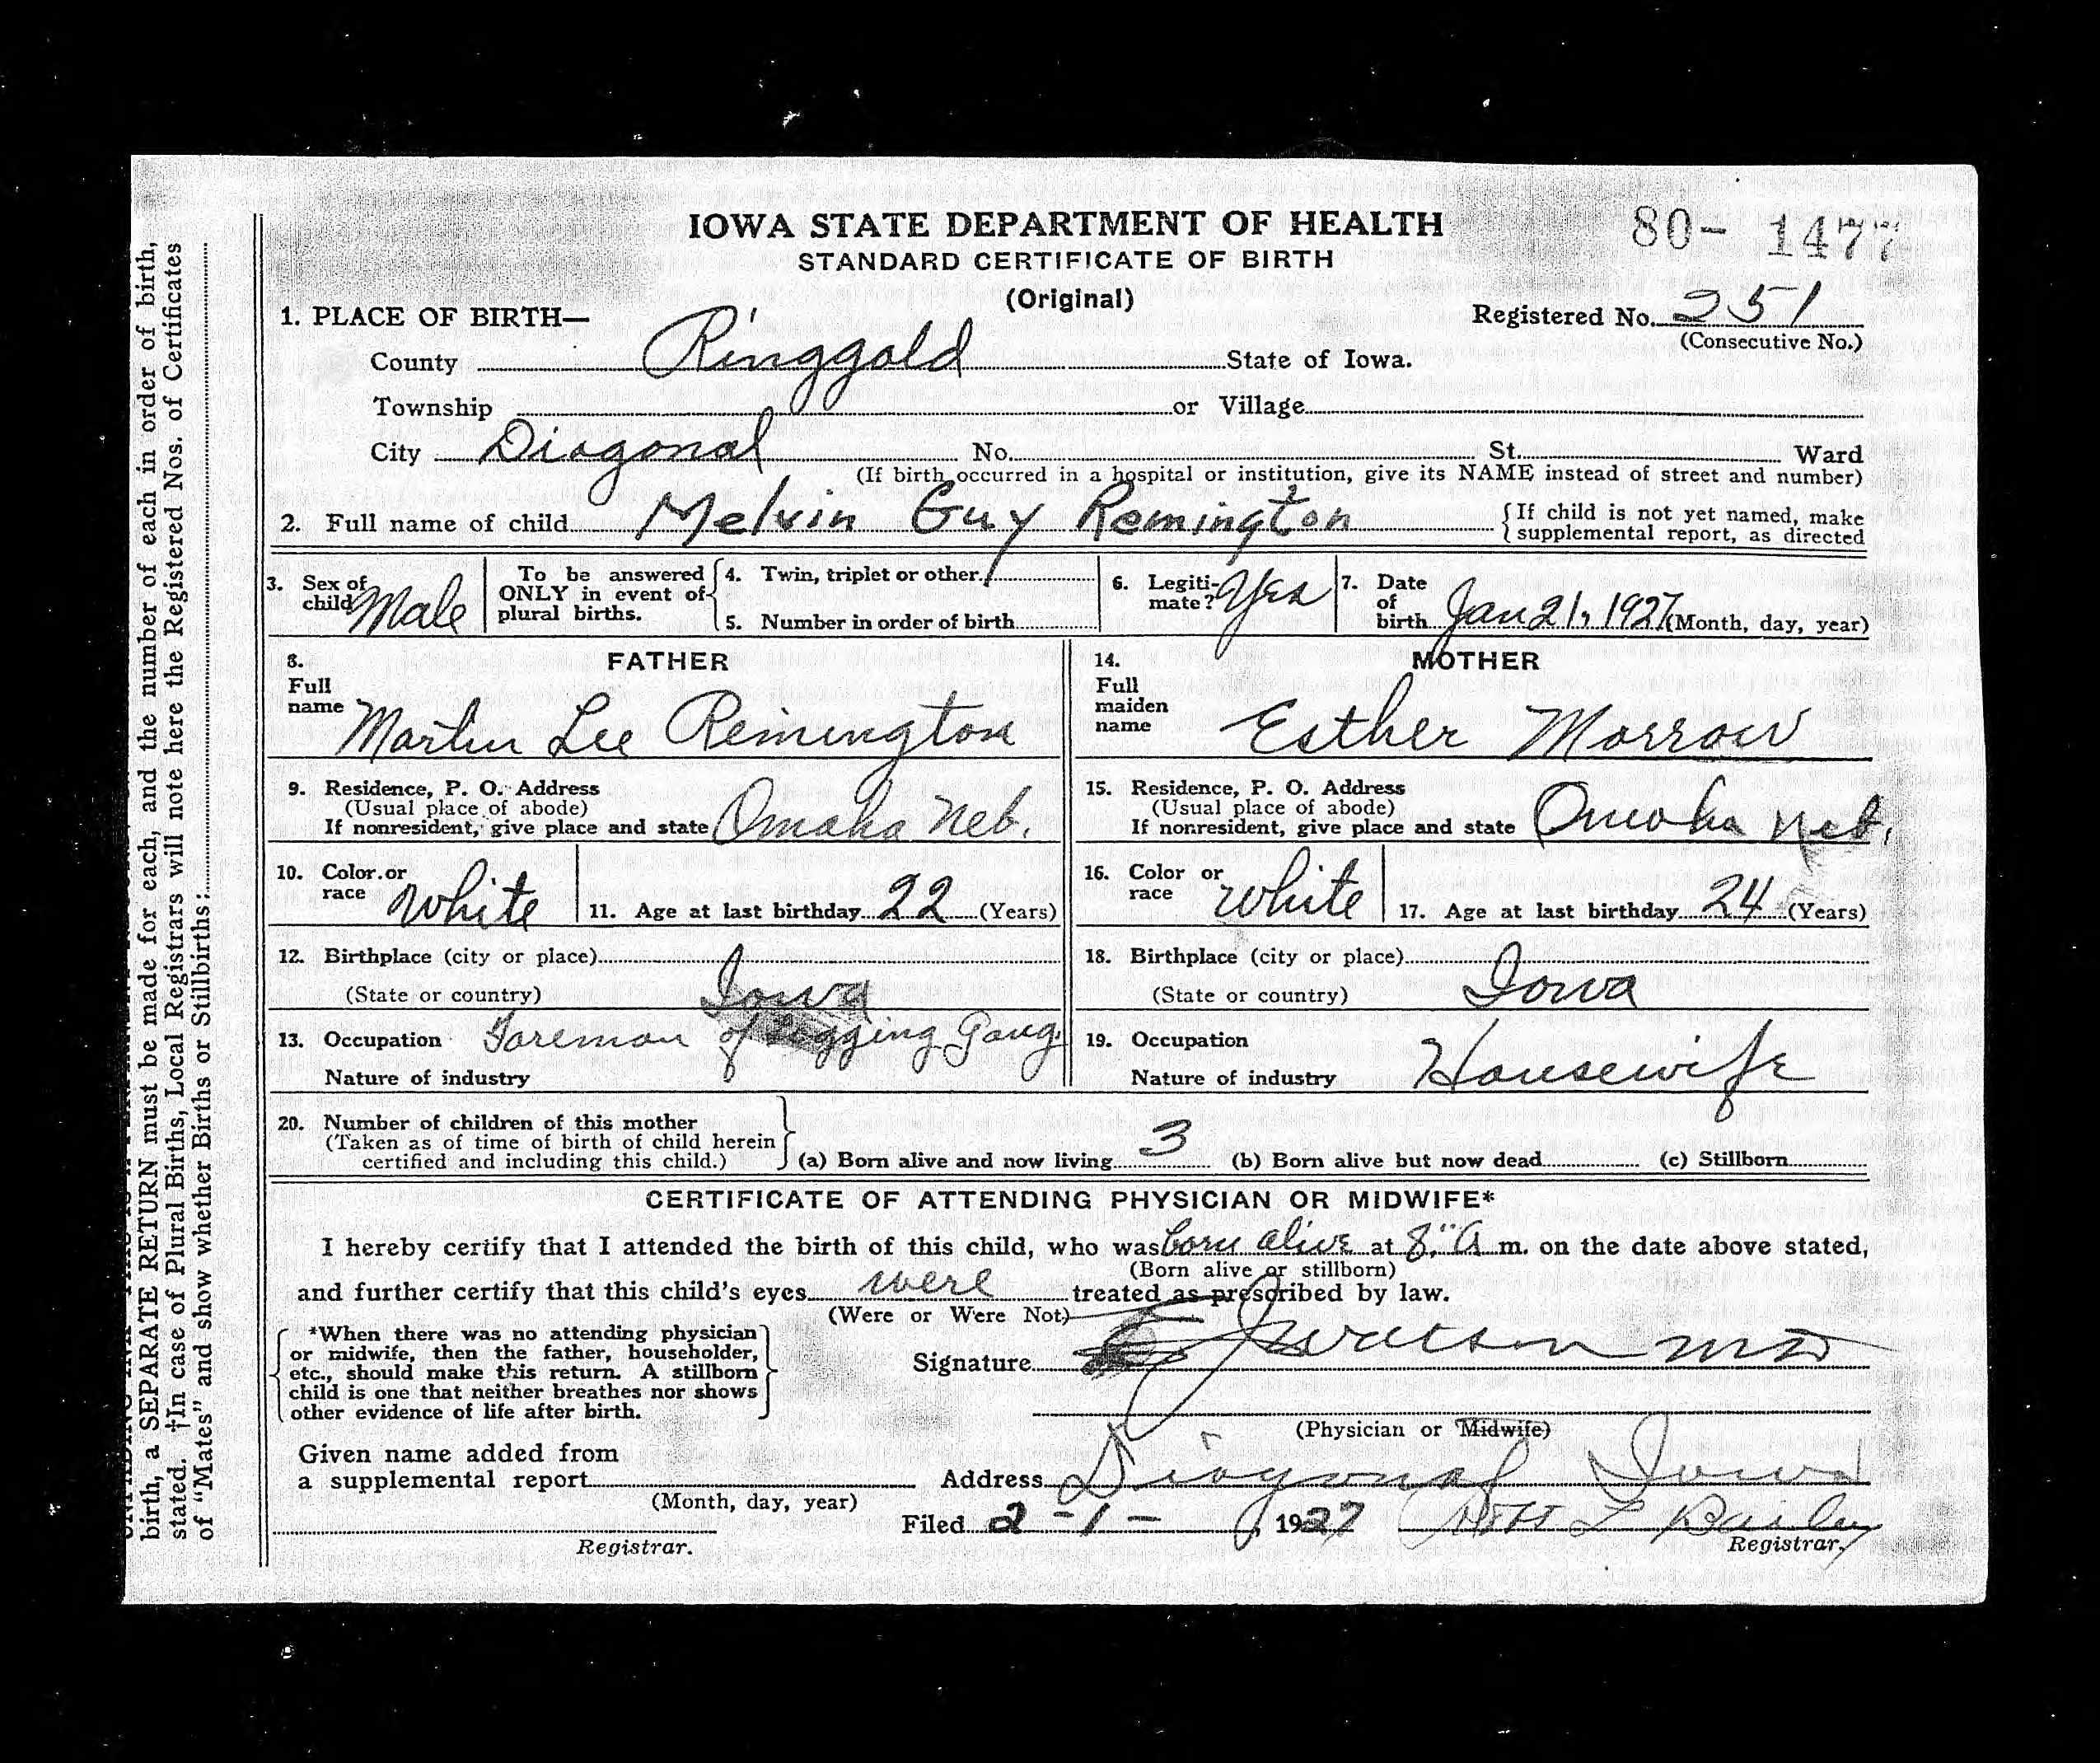 IOWA STATE DEPARTMENT OF HEALTH
80- 1477
STANDARD CERTIFICATE OF BIRTH
(Original)
1. PLACE OF BIRTH—
Registered No. 251
(Consecutive No.)
County Ringgold State of Iowa.
Township or Village
City Diagonal No. St. Ward
(If birth occurred in a hospital or institution, give its NAME instead of street and number)
2. Full name of child Melvin Guy Remington {If child is not yet named, make supplemental report, as directed
3. Sex of child Male
To be answered ONLY in event of plural births.
4. Twin, triplet or other
5. Number in order of birth
6. Legitimate? Yes
7. Date of birth Jan 21, 1927 (Month, day, year)
8. FATHER
Full name Martin Lee Remington
14. MOTHER
Full maiden name Esther Morrow
9. Residence, P. O. Address
(Usual place of abode)
If nonresident, give place and state Omaha Neb.
15. Residence, P. O. Address
(Usual place of abode)
If nonresident, give place and state Omaha Neb.
10. Color or race White
11. Age at last birthday 22 (Years)
16. Color or race White
17. Age at last birthday 24 (Years)
12. Birthplace (city or place)
(State or country) Iowa
18. Birthplace (city or place)
(State or country) Iowa
13. Occupation Foreman of Gang.
Nature of industry
19. Occupation
Nature of industry Housewife
20. Number of children of this mother
(Taken as of time of birth of child herein certified and including this child.)
(a) Born alive and now living 3 (b) Born alive but now dead (c) Stillborn
CERTIFICATE OF ATTENDING PHYSICIAN OR MIDWIFE*
I hereby certify that I attended the birth of this child, who was born alive at 8. A m. on the date above stated,
(Born alive or stillborn)
and further certify that this child's eyes were treated as prescribed by law.
(Were or Were Not)
*When there was no attending physician
or midwife, then the father, householder,
etc., should make this return. A stillborn
child is one that neither breathes nor shows
other evidence of life after birth.
Signature Watson MD
(Physician or Midwife)
Given name added from
a supplemental report
(Month, day, year)
Address Diagonal Iowa
Filed 2-1-, 1927 L Bailey
Registrar.
Registrar.
birth, a SEPARATE RETURN must be made for each, and the number of each in order of birth,
stated. †In case of Plural Births, Local Registrars will note here the Registered Nos. of Certificates
of "Mates" and show whether Births or Stillbirths: